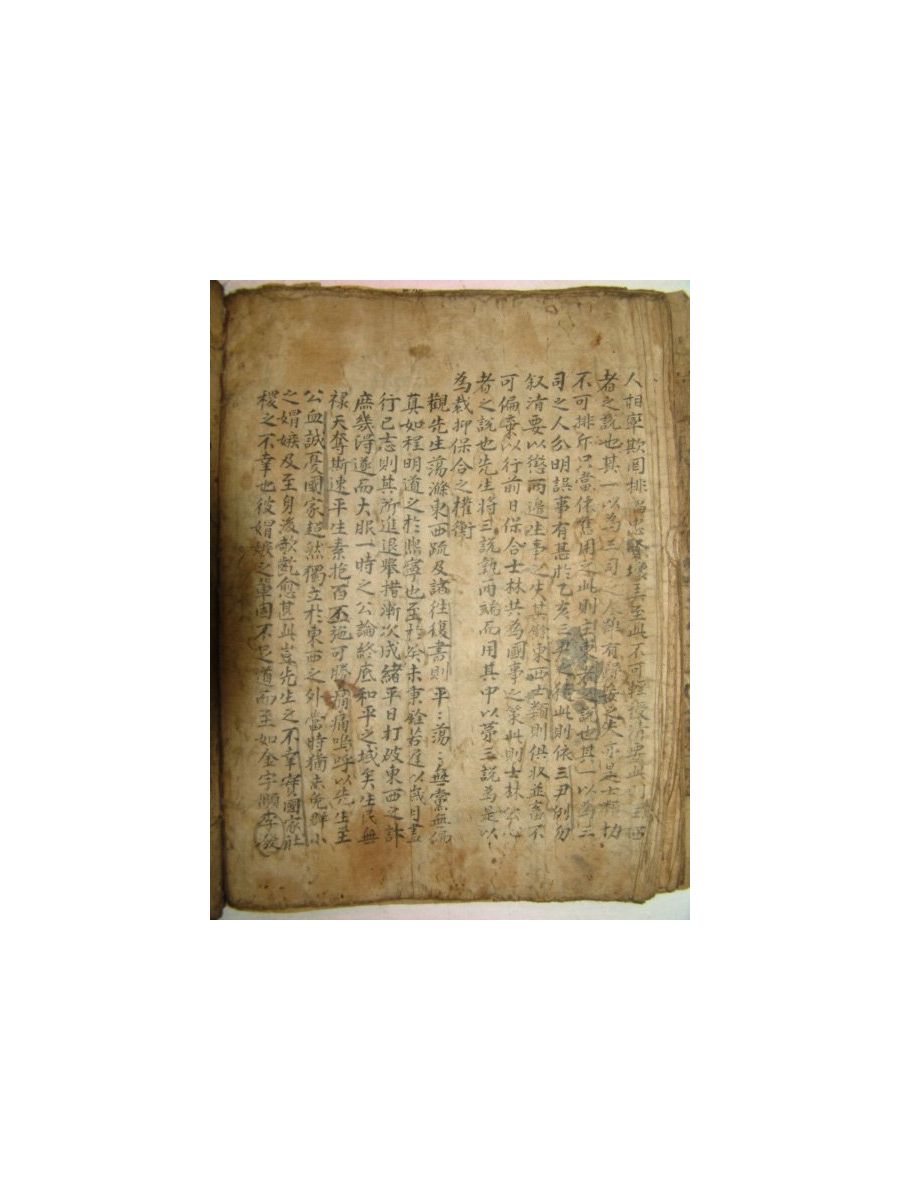 人相率欺罔排陷忠賢壞至此不可輕授清要此則主西
者之說也其一以為三司之人雖有之失亦是士類切
不可排斥只當保舊用之此則主東者之說也其一以為三
司之人分明誤事有甚於乙亥三尹之後此則依三尹例勿
叙清要以懲兩邊生事之人其餘東西士類則俱收並畜不
可偏棄以行前日保合士林共為國事之策此則士林公心
者之說也先生將三說執兩端而用其中以第三說為是以
為裁抑保合之權衡
觀先生蕩滌東西疏及諸往復書則平〻蕩〻無黨無偏
真如程明道之於熙寧也至於癸未東銓若遲以歲月盡
行己志則其所進退舉措漸次成緒平日打破東西之計
庶幾得遂而大服一時之公論終底和平之域矣生民無
祿天奪斯速平生素抱百不一施可勝痛哉嗚呼以先生至
公血誠憂國家超然獨立於東西之外當時猶未免群小
之媢嫉及至身後齮齕愈甚此豈先生之不幸實國家社
稷之不幸也彼媢嫉之輩固不足道而至如金宇顒李潑